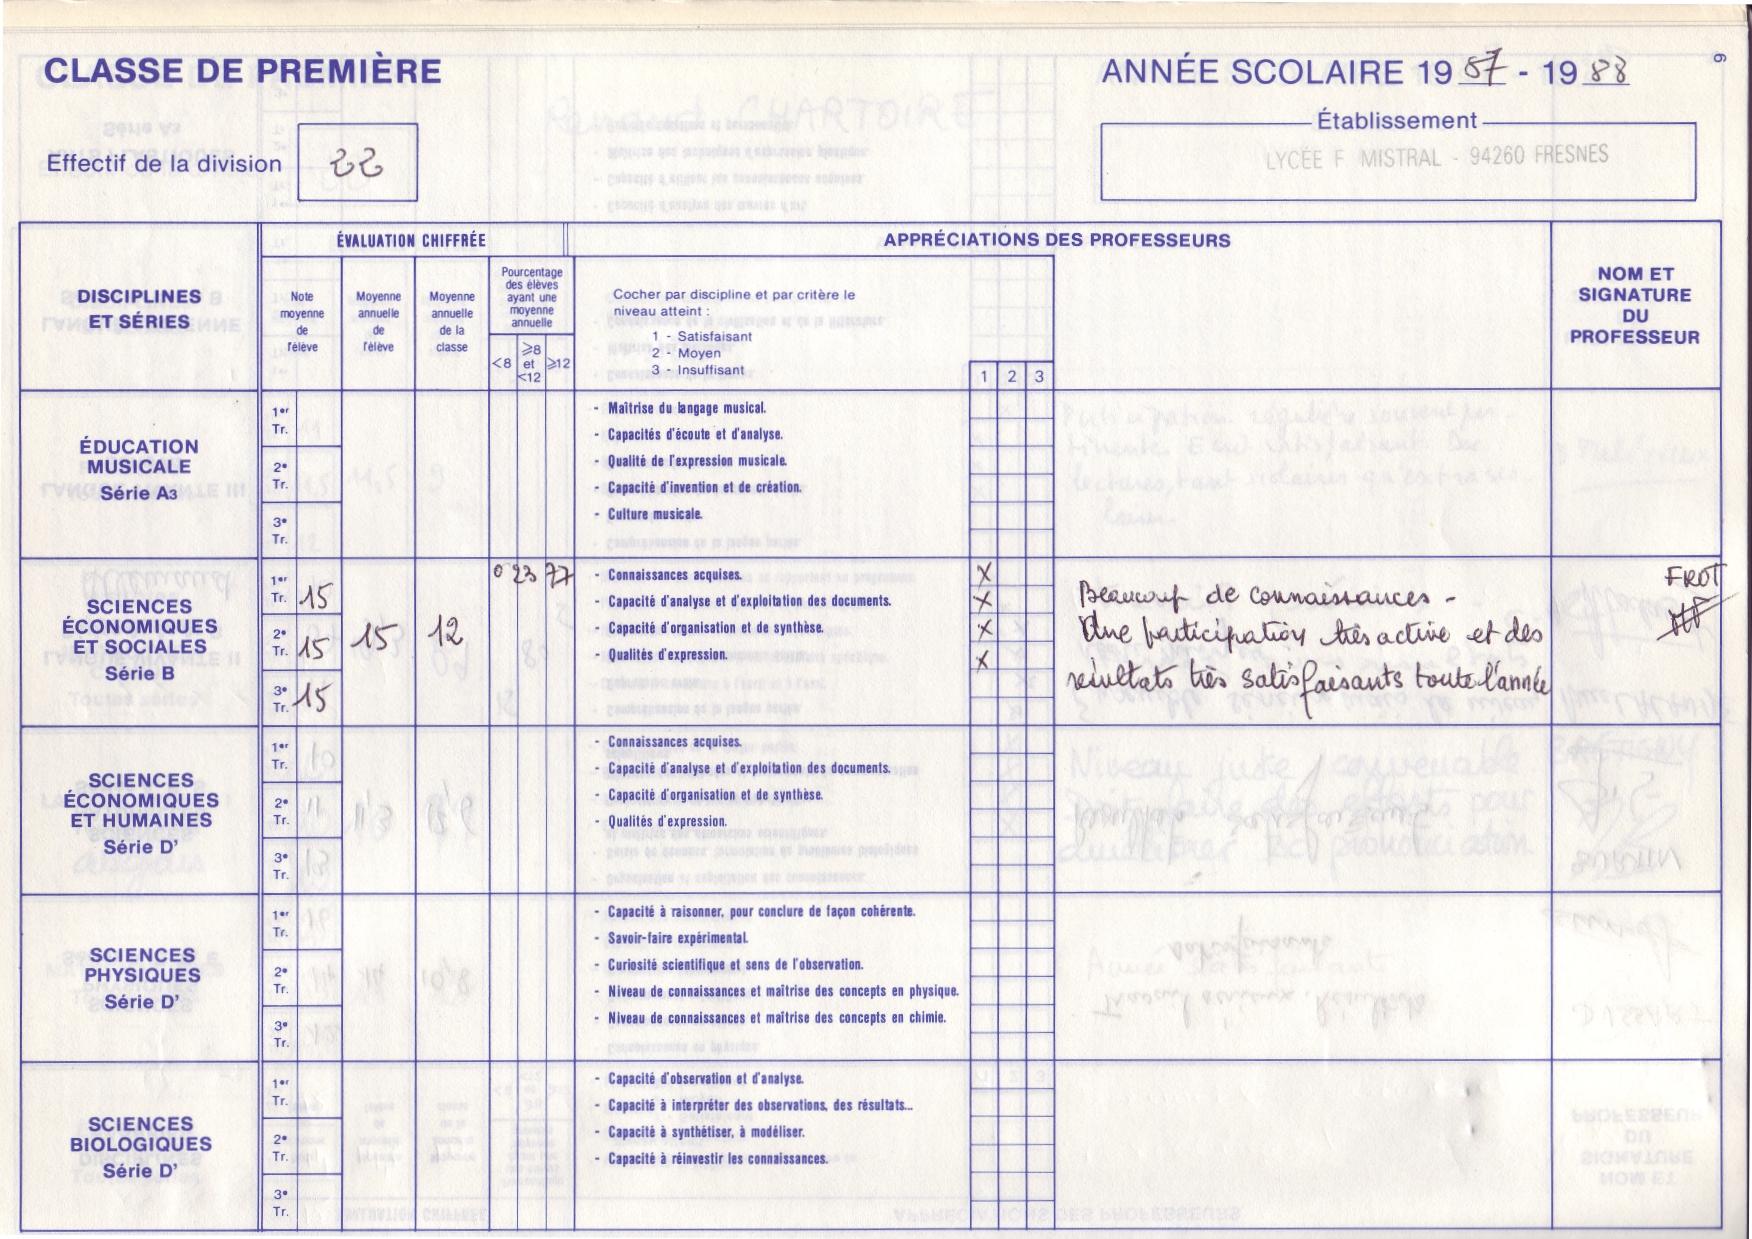 CLASSE DE PREMIÈRE
ANNÉE SCOLAIRE 1987 - 1988
9
Effectif de la division 22
Établissement
LYCÉE F. MISTRAL - 94260 FRESNES
DISCIPLINES
ET SÉRIES
ÉVALUATION CHIFFRÉE
Note
moyenne
de
l'élève
Moyenne
annuelle
de
l'élève
Moyenne
annuelle
de la
classe
Pourcentage
des élèves
ayant une
moyenne
annuelle
<8
≥8
et
<12
≥12
APPRÉCIATIONS DES PROFESSEURS
Cocher par discipline et par critère le
niveau atteint :
1 - Satisfaisant
2 - Moyen
3 - Insuffisant
1 2 3
NOM ET
SIGNATURE
DU
PROFESSEUR
ÉDUCATION
MUSICALE
Série A3
1er
Tr.
2e
Tr.
3e
Tr.
- Maîtrise du langage musical.
- Capacités d'écoute et d'analyse.
- Qualité de l'expression musicale.
- Capacité d'invention et de création.
- Culture musicale.
SCIENCES
ÉCONOMIQUES
ET SOCIALES
Série B
1er
Tr. 15
2e
Tr. 15
3e
Tr. 15
15
12
0 23 77
- Connaissances acquises. X
- Capacité d'analyse et d'exploitation des documents. X
- Capacité d'organisation et de synthèse. X
- Qualités d'expression. X
Beaucoup de connaissances -
Une participation très active et des
résultats très satisfaisants toute l'année
FROT
SCIENCES
ÉCONOMIQUES
ET HUMAINES
Série D'
1er
Tr.
2e
Tr.
3e
Tr.
- Connaissances acquises.
- Capacité d'analyse et d'exploitation des documents.
- Capacité d'organisation et de synthèse.
- Qualités d'expression.
SCIENCES
PHYSIQUES
Série D'
1er
Tr.
2e
Tr.
3e
Tr.
- Capacité à raisonner, pour conclure de façon cohérente.
- Savoir-faire expérimental.
- Curiosité scientifique et sens de l'observation.
- Niveau de connaissances et maîtrise des concepts en physique.
- Niveau de connaissances et maîtrise des concepts en chimie.
SCIENCES
BIOLOGIQUES
Série D'
1er
Tr.
2e
Tr.
3e
Tr.
- Capacité d'observation et d'analyse.
- Capacité à interpréter des observations, des résultats...
- Capacité à synthétiser, à modéliser.
- Capacité à réinvestir les connaissances.